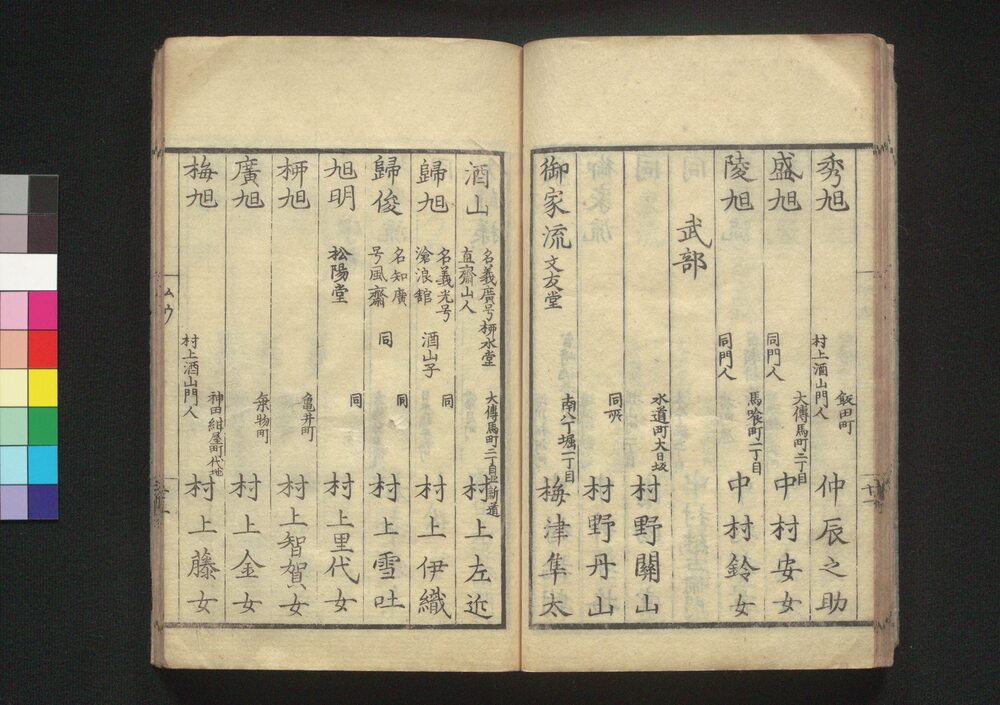 秀旭 村上酒山門人 飯田町 仲辰之助
盛旭 同門人 大傳馬町二丁目 中村安女
陵旭 同門人 馬喰町一丁目 中村鈴女
武部
水道町大日坂 村野關山
同所 村野丹山
御家流 文友堂 南八丁堀一丁目 梅津隼太
酒山 名義廣号栁水堂 直齋山人 大傳馬町二丁目新道 村上左近
歸旭 名義光号 滄浪舘 酒山子 同 村上伊織
歸俊 名知廣 号風齋 同 同 村上雪吐
旭明 松陽堂 同 村上里代女
栁旭 亀井町 村上智賀女
廣旭 乗物町 村上金女
梅旭 村上酒山門人 神田紺屋町代地 村上藤女
ムウ
十一